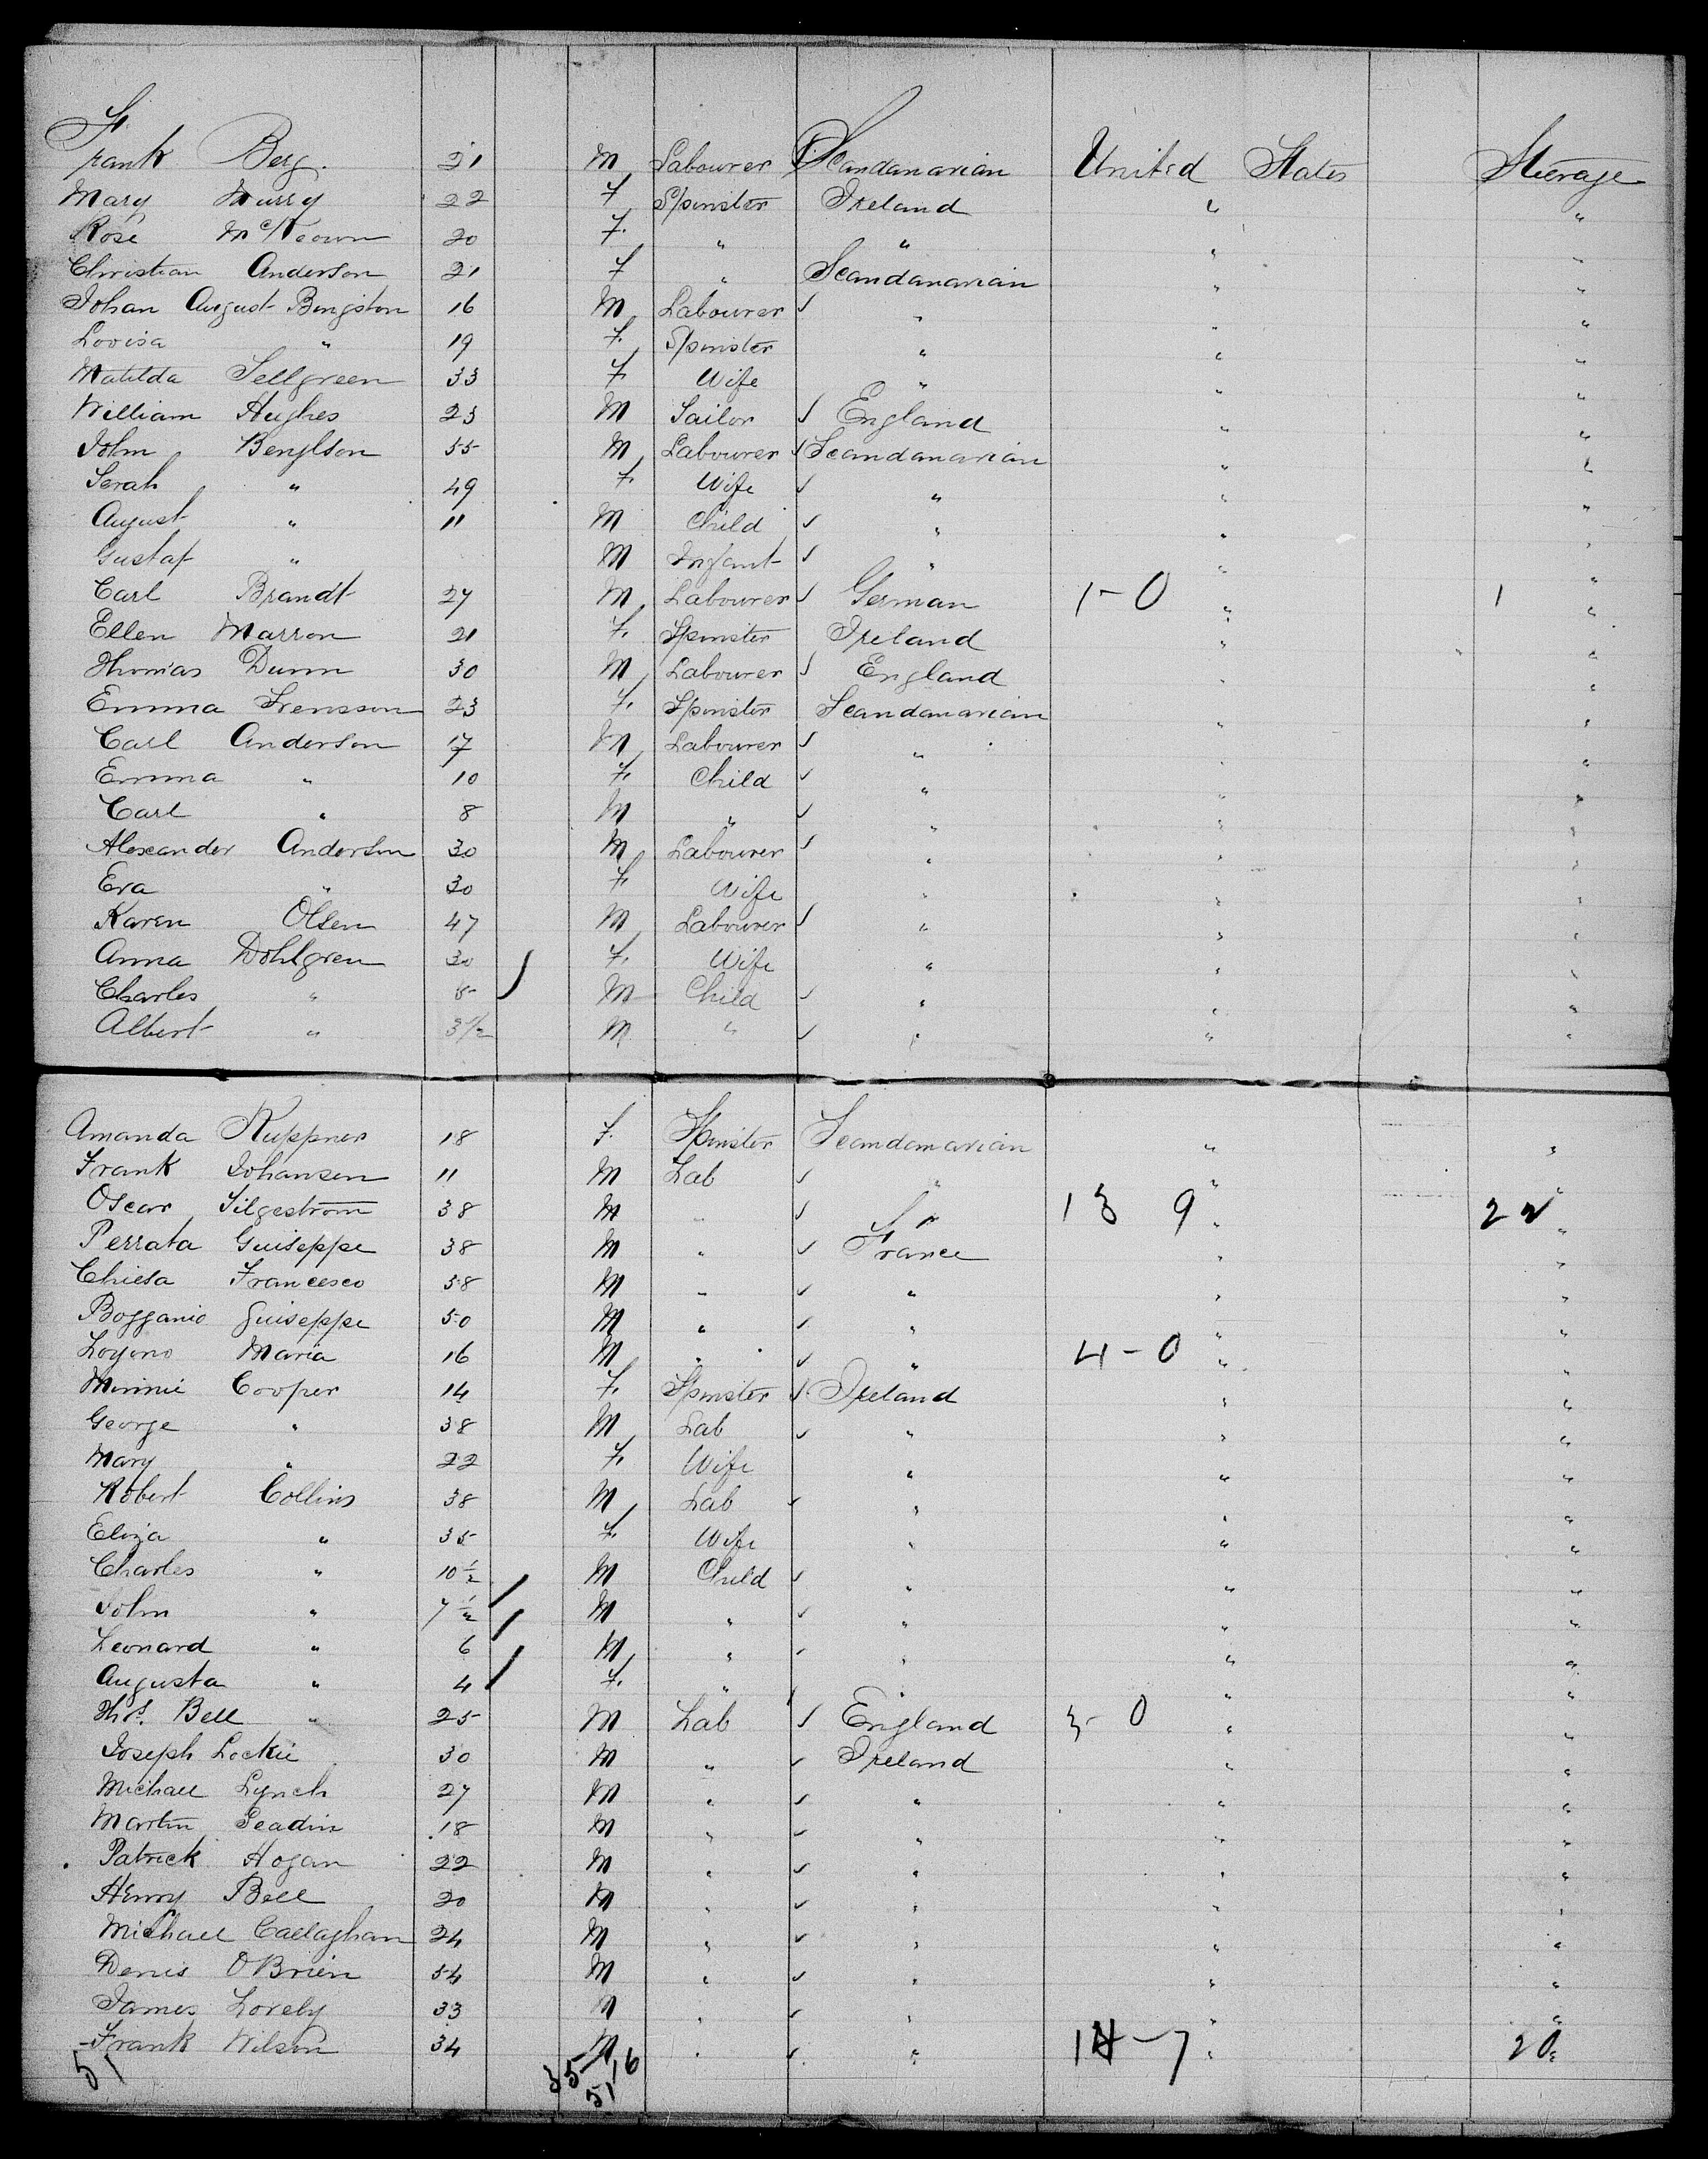 Frank Berg. 21 M Labourer Scandanavian United States Steerage
Mary Murry 22 F Spinster Ireland " "
Rose McKeown 20 F. " " " "
Christian Anderson 21 F " Scandanavian " "
Johan August Bengston 16 M Labourer ✓ " " "
Lovisa " 19 F. Spinster " " "
Matilda Sellgreen 33 F. Wife " " "
William Hughes 23 M Sailor ✓ England " "
John Bengtson 55 M Labourer ✓ Scandanavian " "
Serah " 49 F. Wife ✓ " " "
August " 11 M Child ✓ " " "
Gustaf " M Infant ✓ " " "
Carl Brandt 27 M Labourer ✓ German 1-0 " 1 "
Ellen Marron 21 F. Spinster Ireland " "
Thomas Dunn 30 M Labourer ✓ England " "
Emma Svensson 23 F. Spinster Scandanavian " "
Carl Anderson 17 M Labourer ✓ " " "
Emma " 10 F. Child ✓ " " "
Carl " 8 M " ✓ " " "
Alexander Anderson 30 M Labourer ✓ " " "
Eva " 30 F. Wife " " "
Karen Olsen 47 M Labourer ✓ " " "
Anna Dohlgren 30 F. Wife " " "
Charles " 5 M Child ✓ " " "
Albert " 3 1/2 M " ✓ " " "
Amanda Kuppner 18 F. Spinster Scandanavian " "
Frank Johansen 11 M Lab ✓ " " "
Oscar Silgestrom 38 M " ✓ " 13 9 " 22 "
Perrata Guiseppe 38 M " ✓ France " "
Chiesa Francesco 38 M " ✓ " " "
Bogganio Guiseppe 50 M " ✓ " " "
Loyono Maria 16 M " ✓ " 4-0 " "
Minnie Cooper 14 F. Spinster ✓ Ireland " "
George " 38 M Lab ✓ " " "
Mary " 22 F. Wife " " "
Robert Collins 38 M Lab ✓ " " "
Eliza " 35 F. Wife " " "
Charles " 10 1/2 M Child ✓ " " "
John " 7 1/2 M " ✓ " " "
Leonard " 6 M " ✓ " " "
Augusta " 4 F. " " " "
Thos. Bell " 25 M Lab ✓ England 3-0 " "
Joseph Leckie 30 M " ✓ Ireland " "
Michael Lynch 27 M " ✓ " " "
Martin 18 M " ✓ " " "
Patrick Hogan 22 M " ✓ " " "
Henry Bell 20 M " ✓ " " "
Michael Callaghan 24 M " ✓ " " "
Denis OBrien 54 M " ✓ " " "
James Lovely 33 M " ✓ " " "
Frank Wilson 34 M " ✓ " 14-7 " 20 "
51 35 16
51